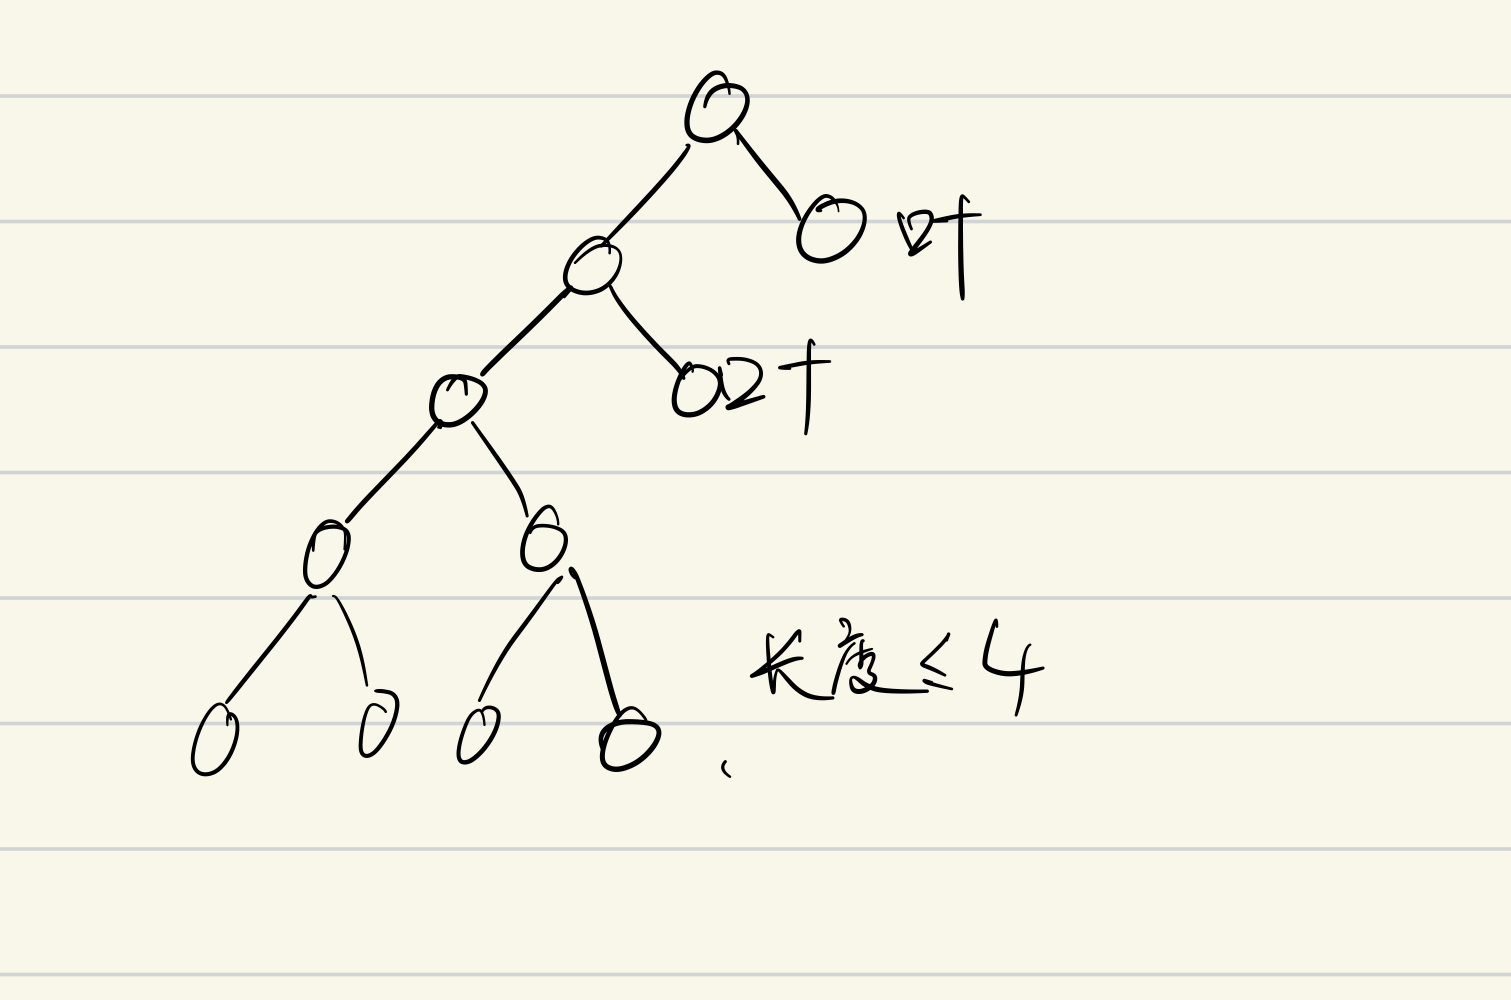 叶
叶
长度≤4